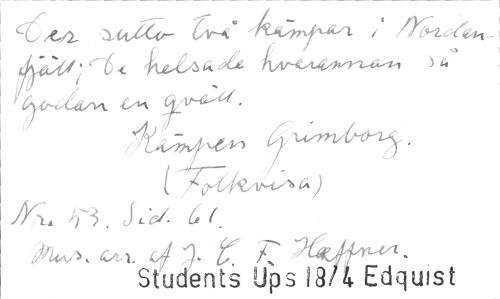 Der sutto två kämpar i Nordan-
fjäll; De helsade hvarannan så
godan en qväll.
Kämpen Grimborg.
(Folkvisa)
Nr. 53. Sid. 61.
Mus. arr. af J. C. F. Hæffner.
Students Ups 18/4 Edquist